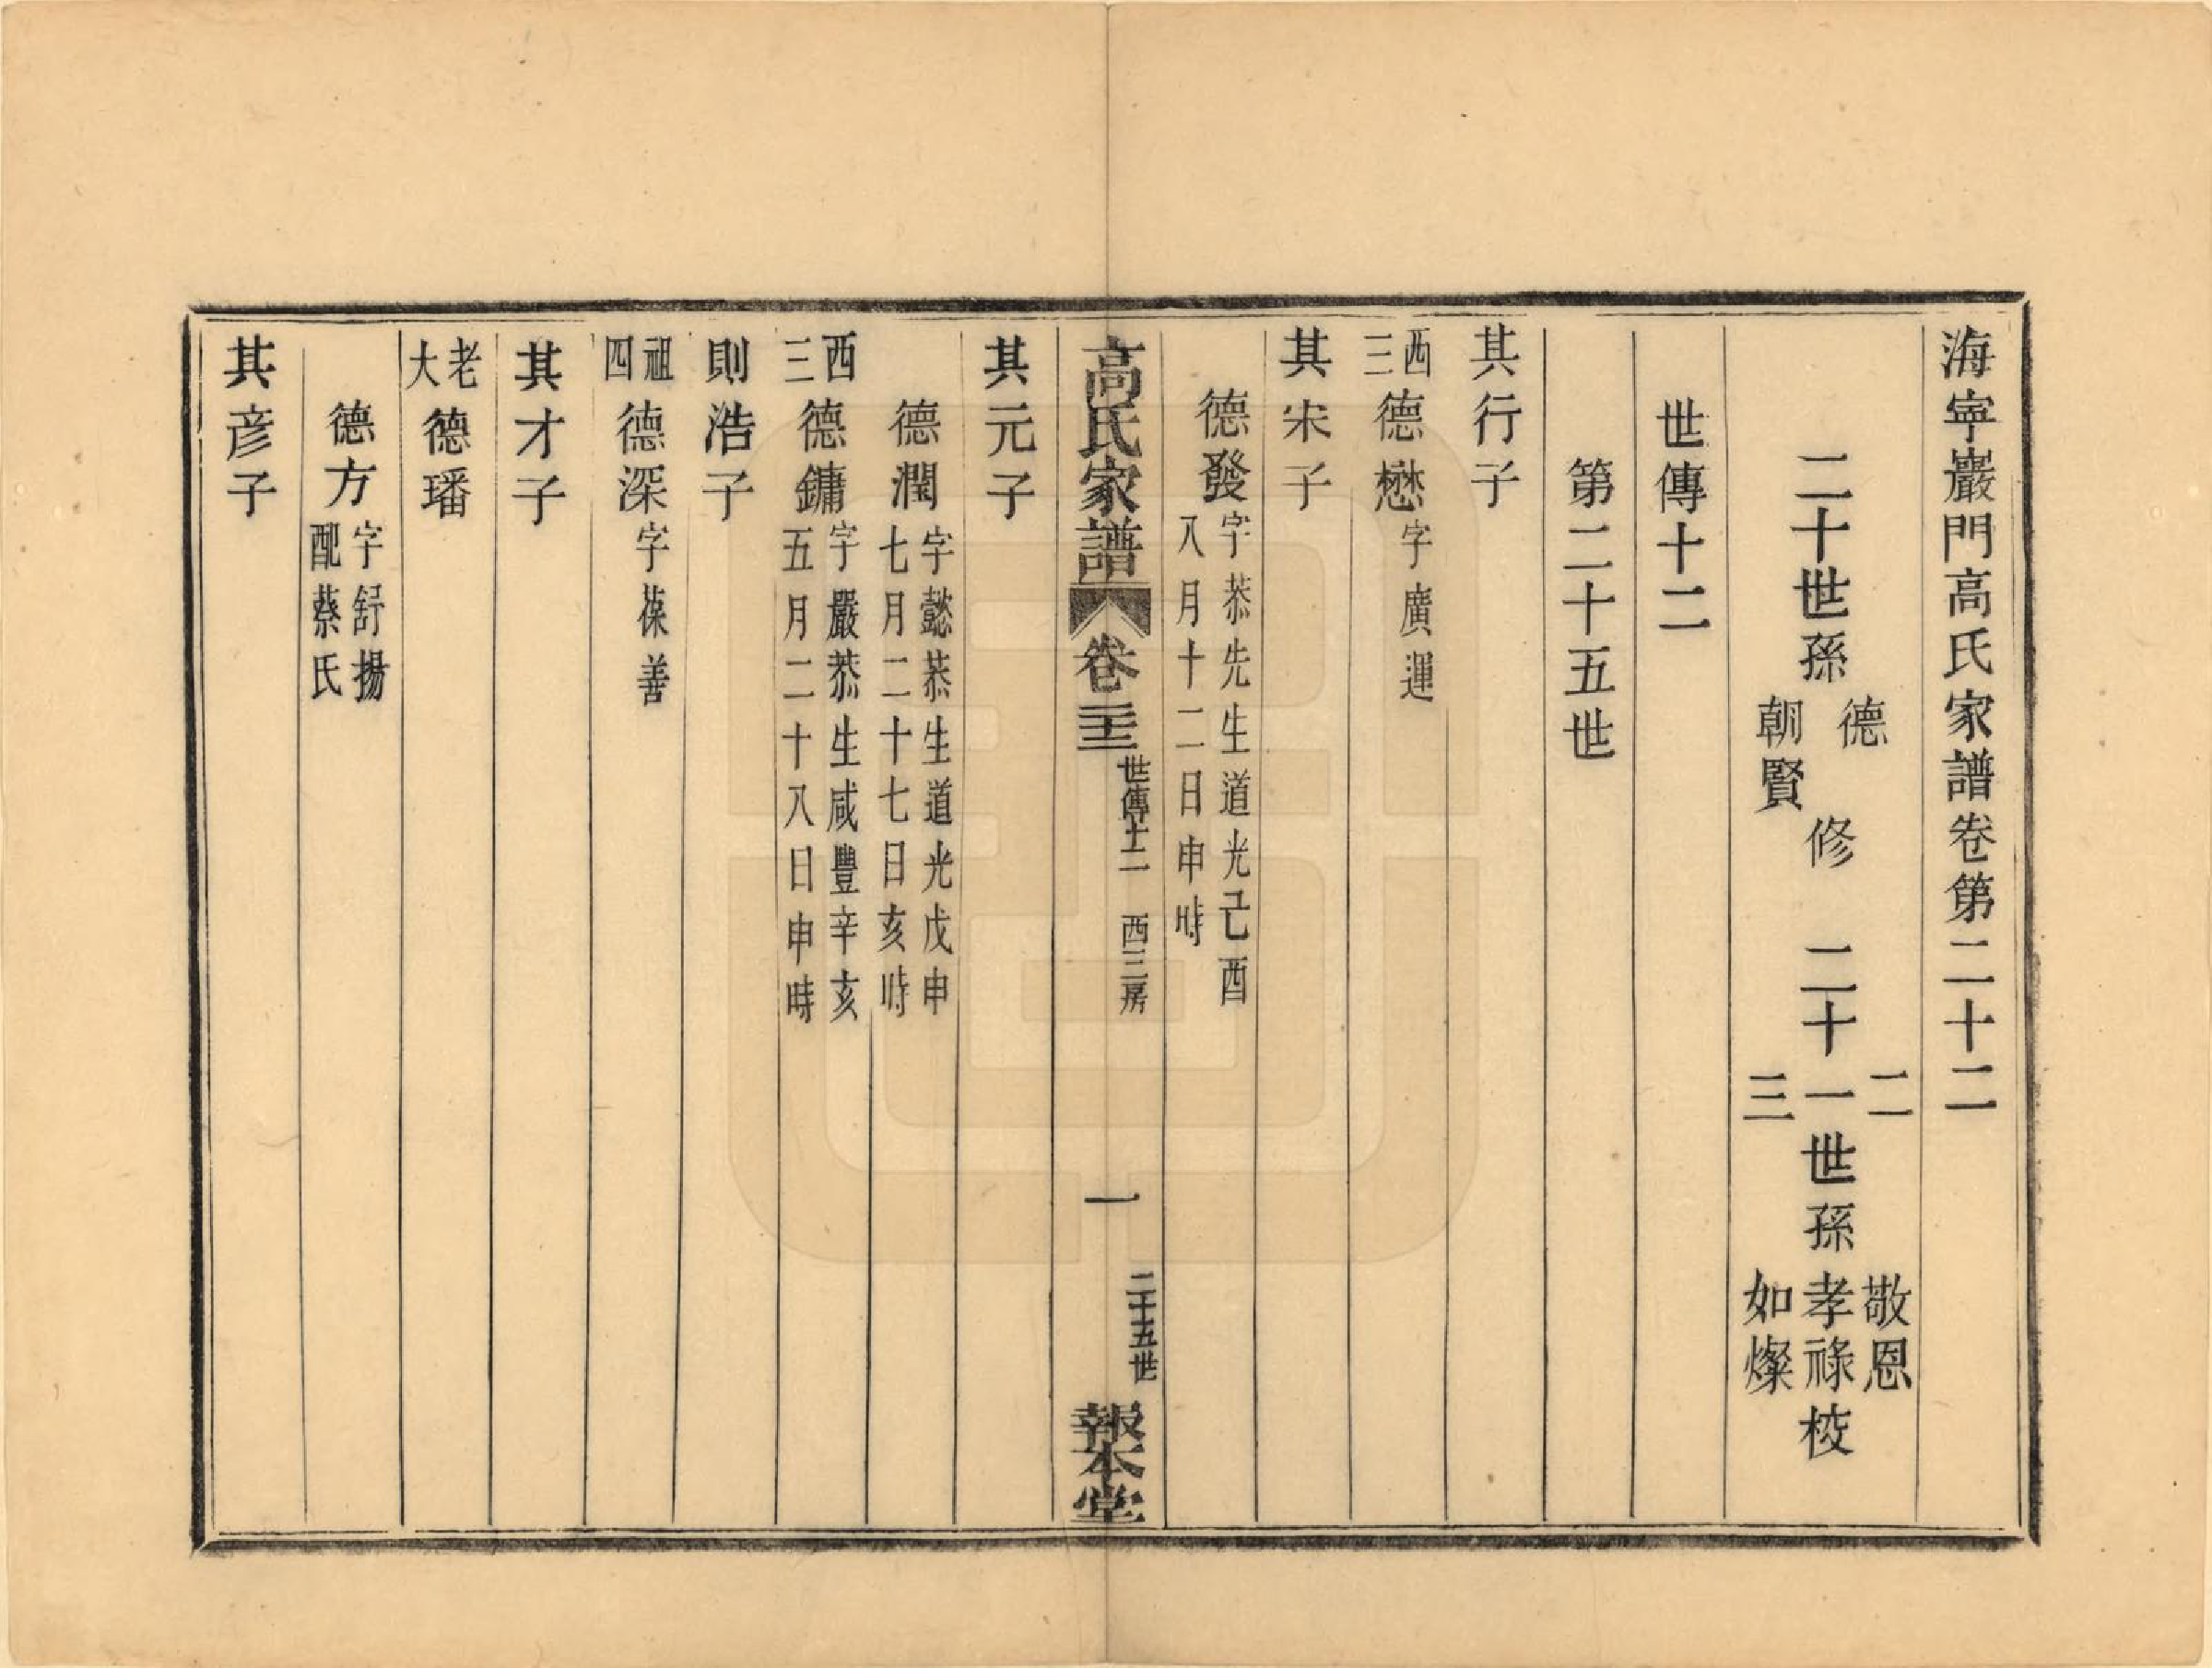 海寧巖門高氏家譜卷第二十二
二十世孫德朝賢修　二十二一三世孫敬恩孝祿如燦校
世傳十二
第二十五世
其行子
西三德懋字廣運
其宋子
德發字菾先生道光己酉
八月十二日申時
高氏家譜　卷二十二　世傳十二　西三房　一　二十五世　報本堂
其元子
德潤字懿菾生道光戊申
七月二十七日亥時
西三德鏞字嚴菾生咸豐辛亥
五月二十八日申時
則浩子
祖四德深字葆善
其才子
老大德璠
德方字舒揚
配蔡氏
其彦子